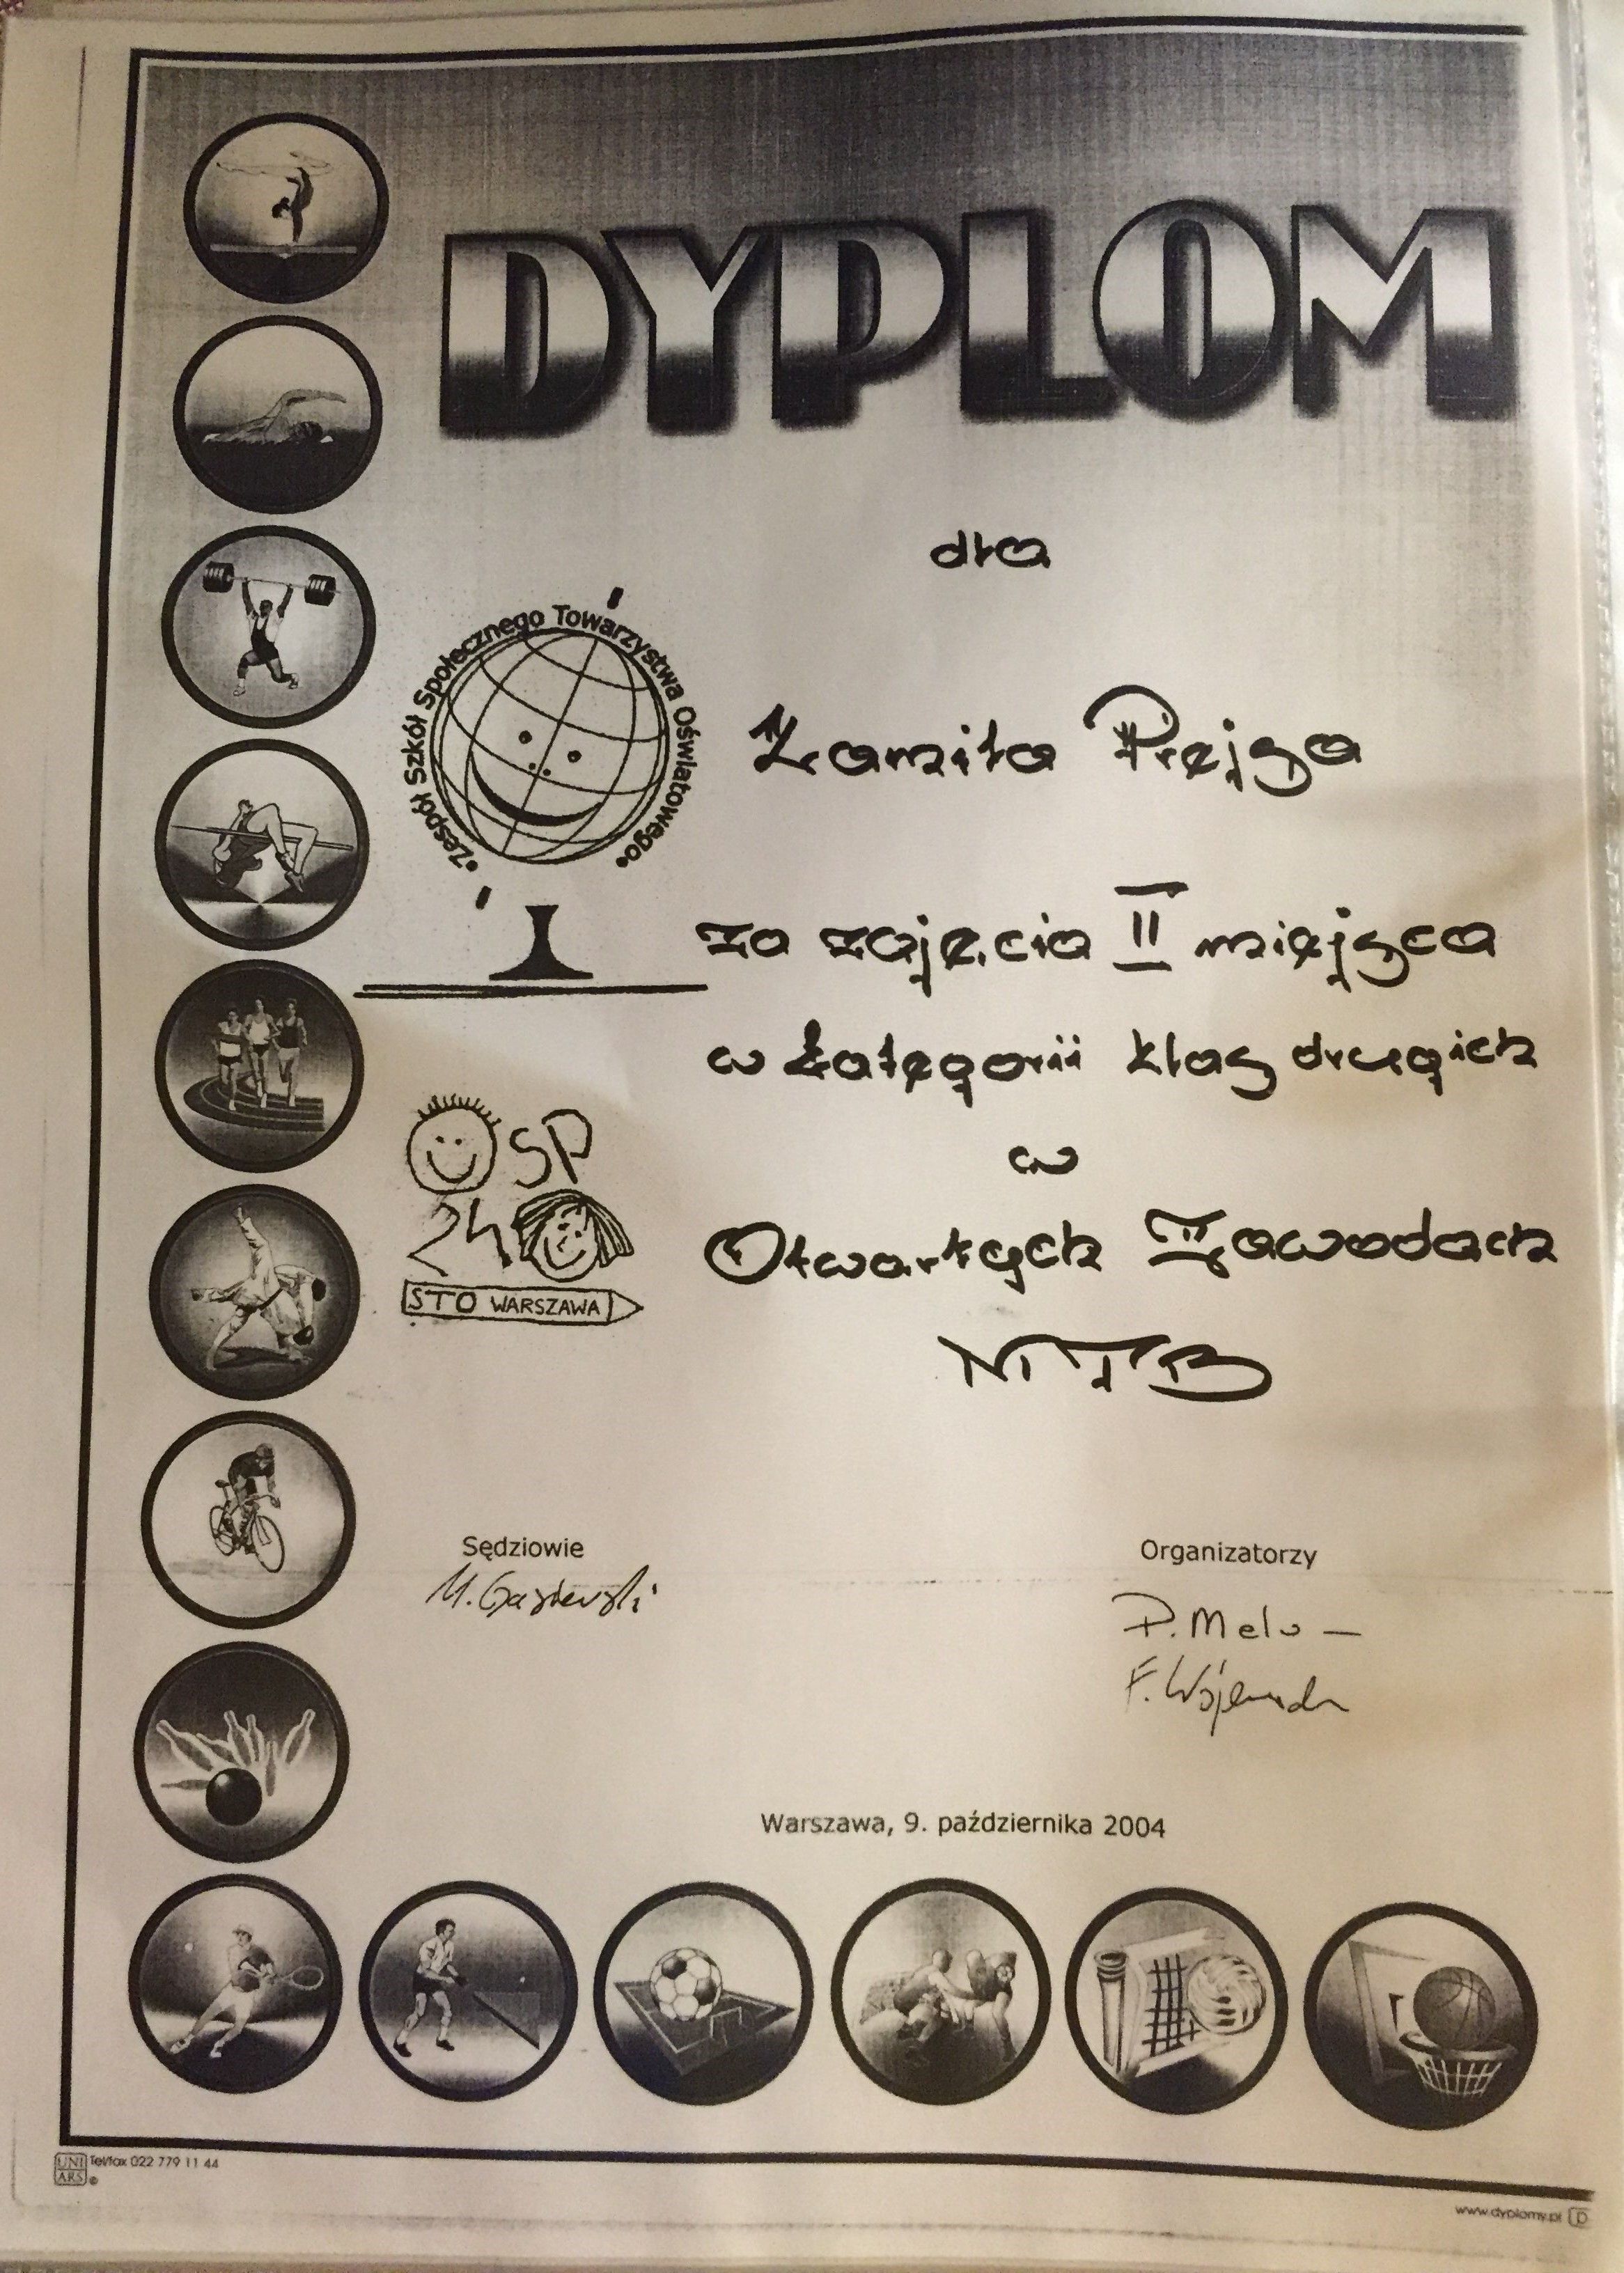 DYPLOM
dla
•Zespół Szkół Społecznego Towarzystwa Oświatowego•
Kamila
za zajęcia II miejsca
w kategorii klas drugich
w
Otwartych Zawodach
MTB
SP
24
STO WARSZAWA
Sędziowie
Organizatorzy
Warszawa, 9. października 2004
UNI ARS ® Tel/fax 022 779 11 44
www.dyplomy.pl D